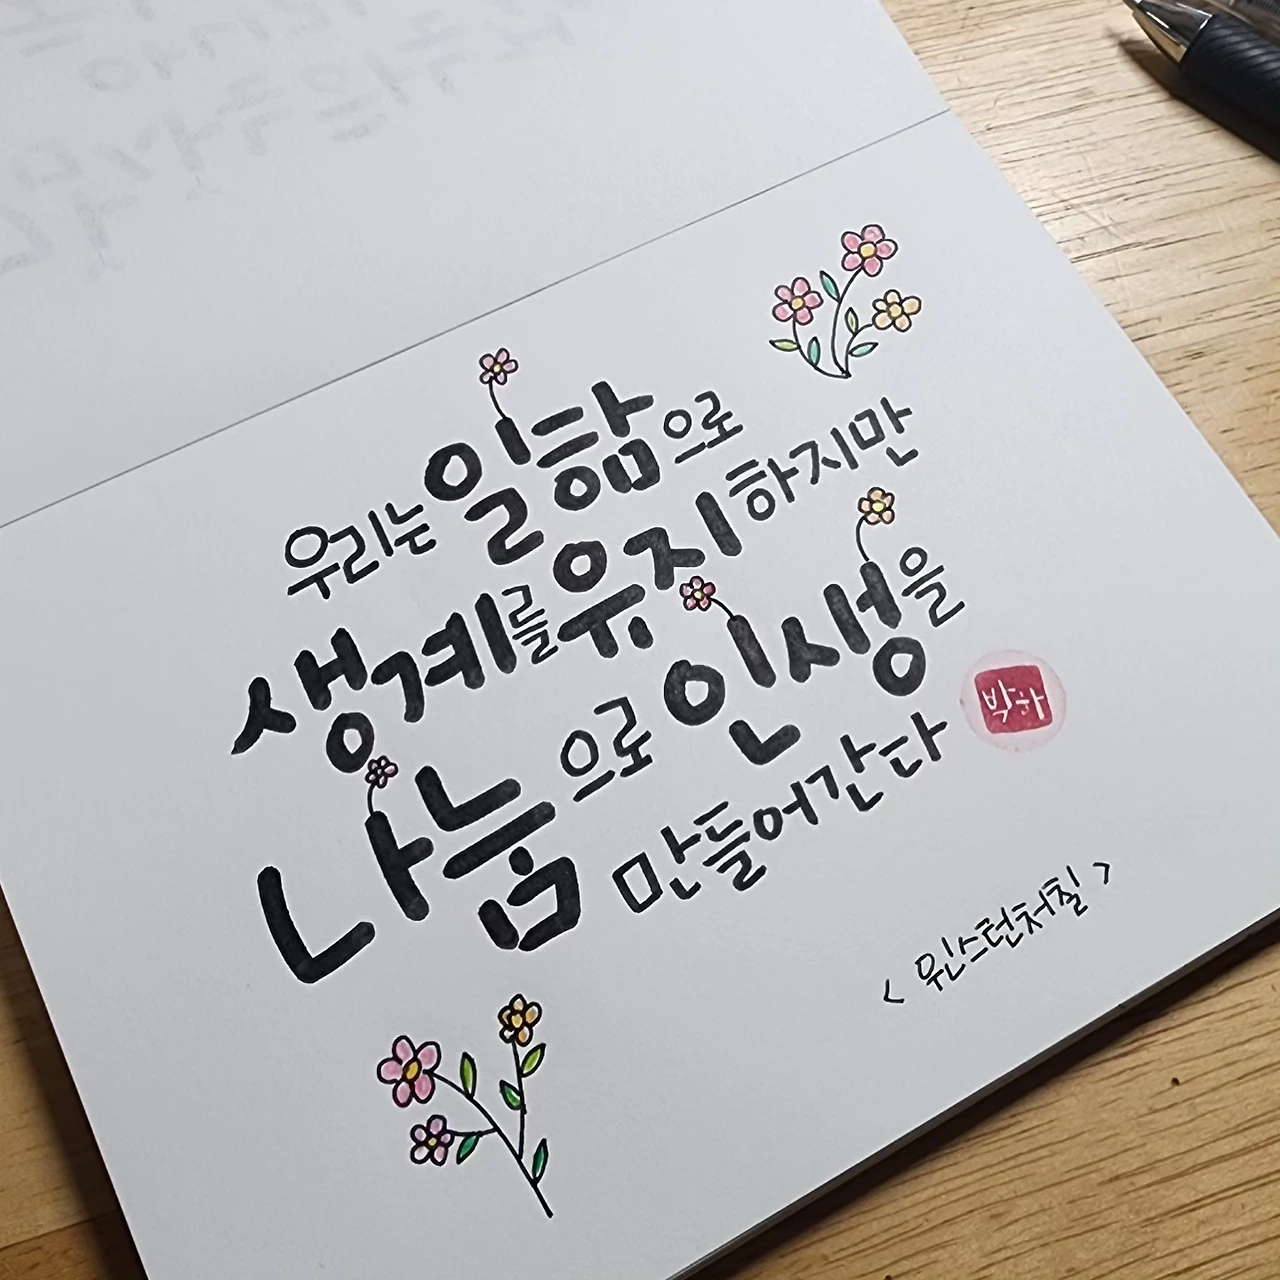 우리는 일함으로
생계를 유지하지만
나눔으로 인생을
만들어간다
박하
<윈스턴처칠 >